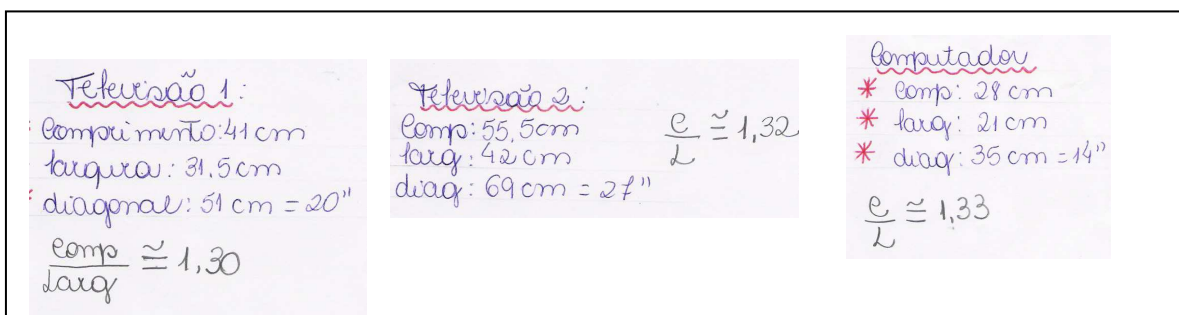 Televisão 1:
Comprimento: 41 cm
largura: 31.5 cm
diagonal: 51 cm = 20"
comp
Larg ≅ 1,30
Televisão 2:
Comp: 55,5cm
larg: 42 cm
diag: 69 cm = 27"
C
L ≅ 1,32
Computador
* Comp: 28 cm
* larg: 21 cm
* diag: 35 cm = 14"
C
L ≅ 1,33